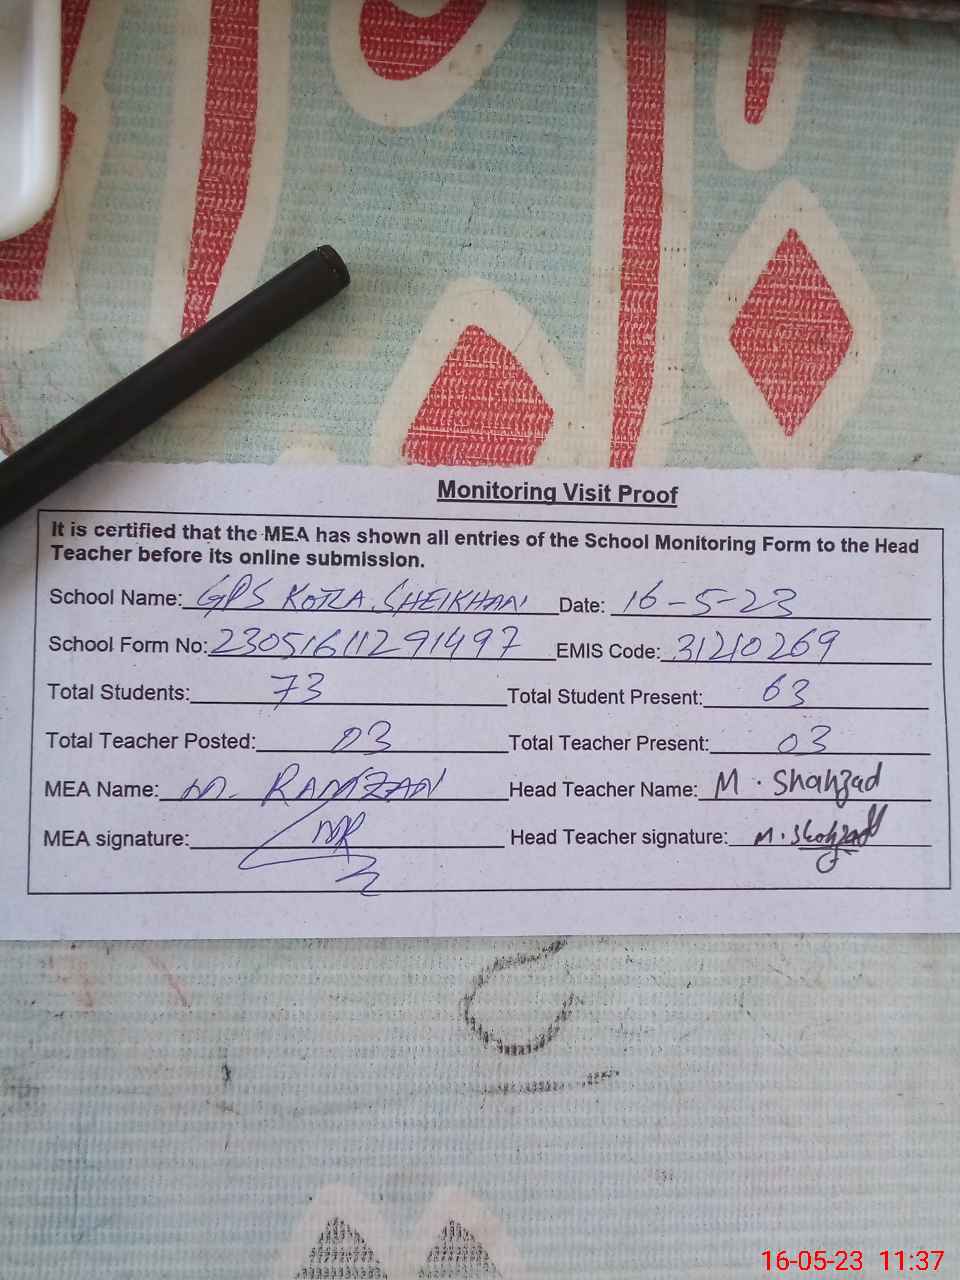 Monitoring Visit Proof
It is certified that the MEA has shown all entries of the School Monitoring Form to the Head
Teacher before its online submission.
School Name: GPS KOTLA SHEIKHAN Date: 16-5-23
School Form No: 23051611291497 EMIS Code: 31210269
Total Students: 73 Total Student Present: 63
Total Teacher Posted: 03 Total Teacher Present: 03
MEA Name: M. RAMZAN Head Teacher Name: M. Shahzad
MEA signature: MR Head Teacher signature: M. Shahzad
16-05-23 11:37